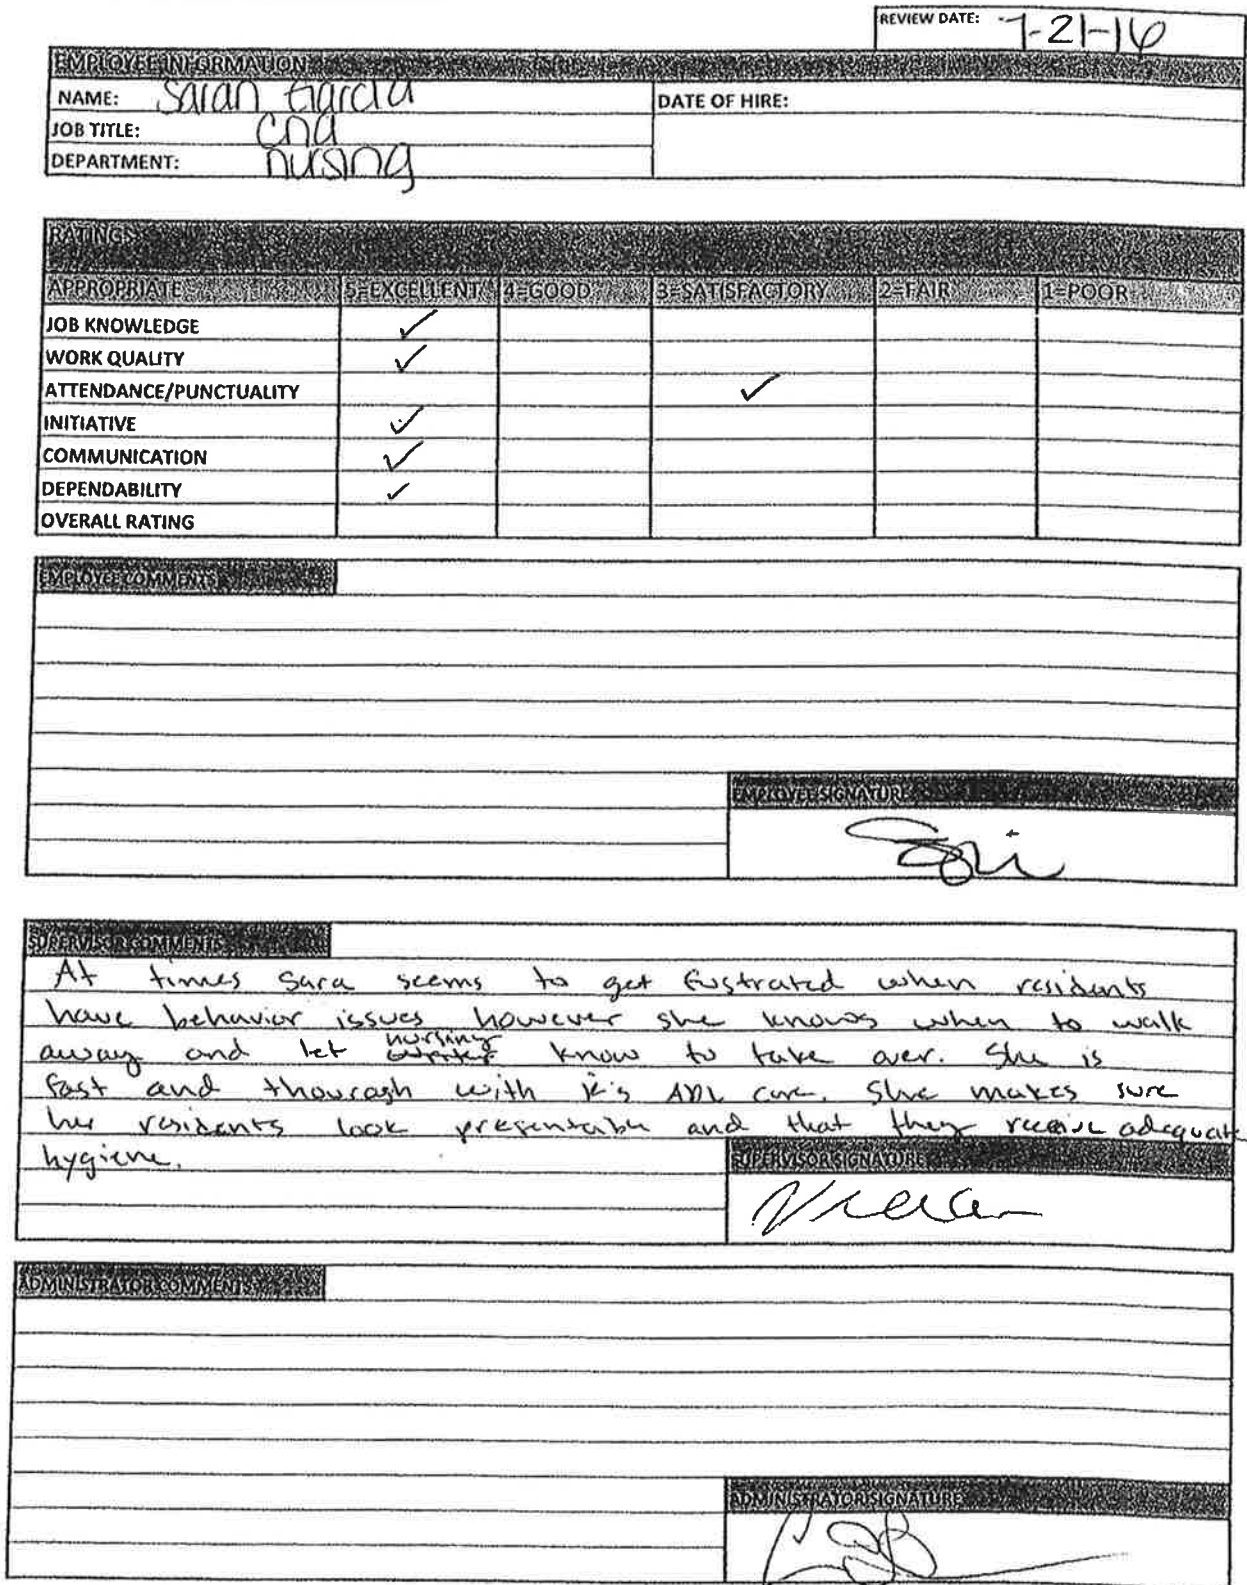 REVIEW DATE: 7-21-16
EMPLOYEE INFORMATION
NAME: Sarah Garcia
DATE OF HIRE:
JOB TITLE: cna
DEPARTMENT: nursing
RATINGS
APPROPRIATE 5=EXCELLENT 4=GOOD 3=SATISFACTORY 2=FAIR 1=POOR
JOB KNOWLEDGE ✓
WORK QUALITY ✓
ATTENDANCE/PUNCTUALITY ✓
INITIATIVE ✓
COMMUNICATION ✓
DEPENDABILITY ✓
OVERALL RATING
EMPLOYEE COMMENTS
EMPLOYEE SIGNATURE
SUPERVISOR COMMENTS
At times Sara seems to get fustrated when residents
have behavior issues however she knows when to walk
away and let nursing know to take over. She is
fast and thourogh with ADL care. She makes sure
her residents look presentable and that they receive adequate
hygiene.
SUPERVISOR SIGNATURE
ADMINISTRATOR COMMENTS
ADMINISTRATOR SIGNATURE